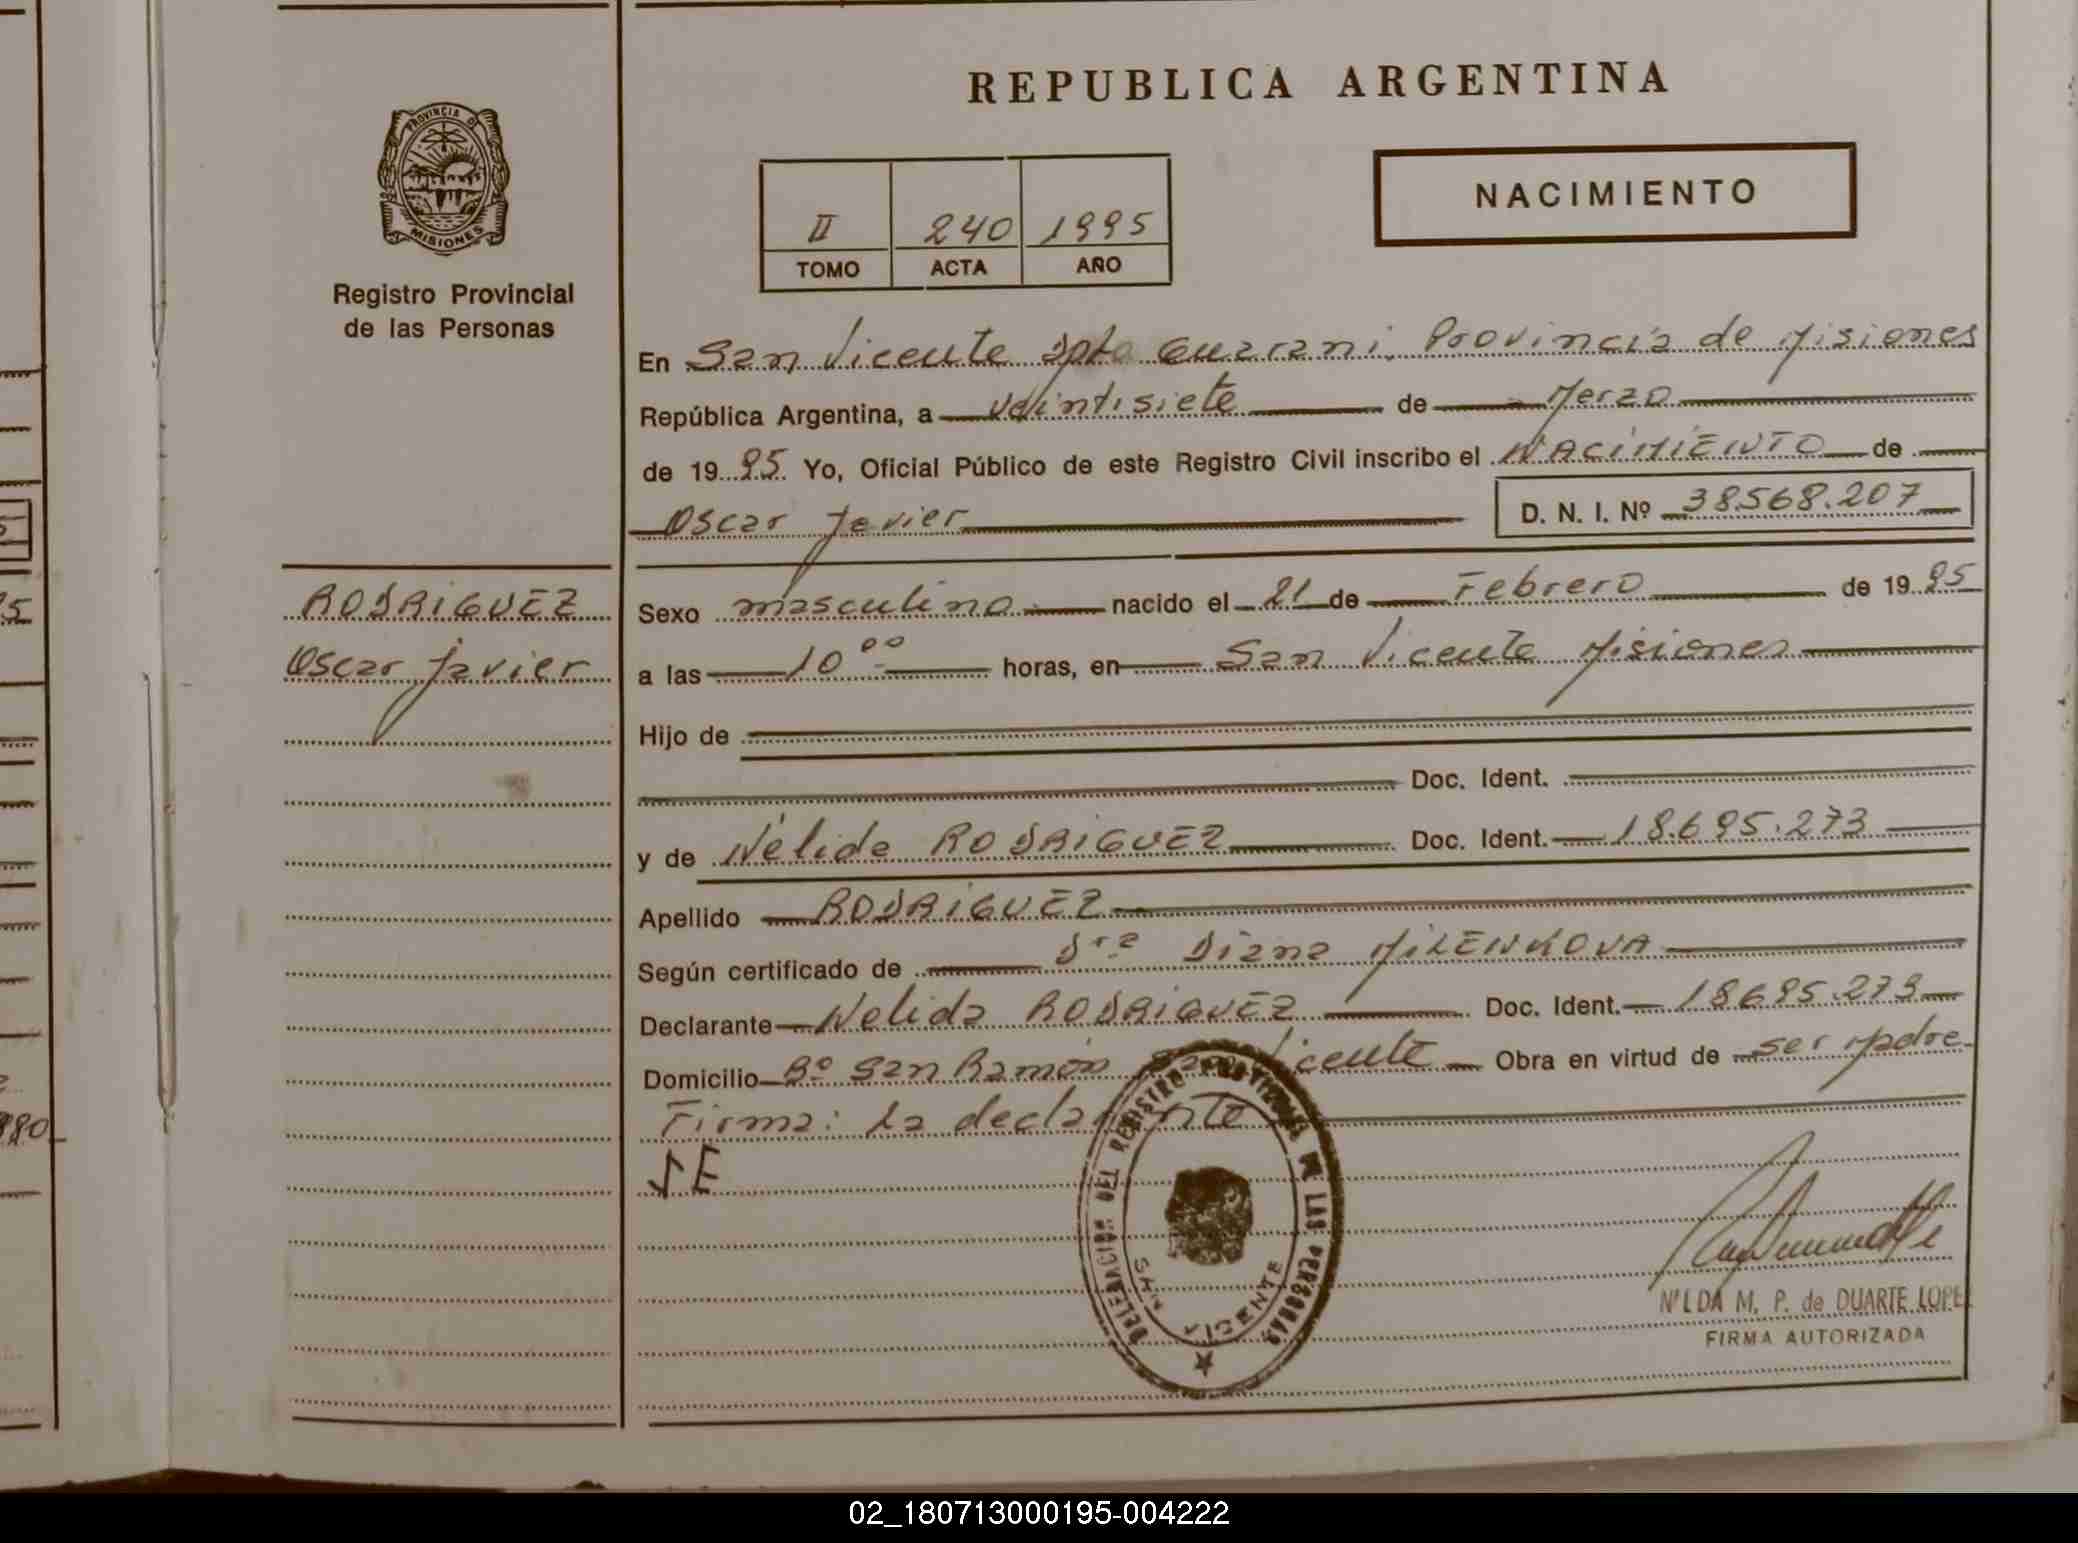 REPUBLICA ARGENTINA
PROVINCIA D
MISIONES
Registro Provincial
de las Personas
II 240 1995
TOMO ACTA AÑO
NACIMIENTO
En San Vicente Dpto Guarani. Provincia de Misiones
República Argentina, a veintisiete de Marzo
de 1995. Yo, Oficial Público de este Registro Civil inscribo el NACIMIENTO de
Oscar Javier D. N. I. Nº 38.568.207
RODRIGUEZ
Oscar Javier
Sexo masculino nacido el 21 de Febrero de 1995
a las 10 00 horas, en San Vicente Misiones
Hijo de
Doc. Ident.
y de Nélida RODRIGUEZ Doc. Ident. 18.695.273
Apellido RODRIGUEZ
Según certificado de Dra Diana MILENKOVA
Declarante Nelida RODRIGUEZ Doc. Ident. 18.695.273
Domicilio Bº San Ramón San Vicente Obra en virtud de ser Madre
Firma: La declarante
DELEGACION DEL REGISTRO PROVINCIAL DE LAS PERSONAS
SAN VICENTE
NILDA M. P. de DUARTE LOPE
FIRMA AUTORIZADA
02_180713000195-004222